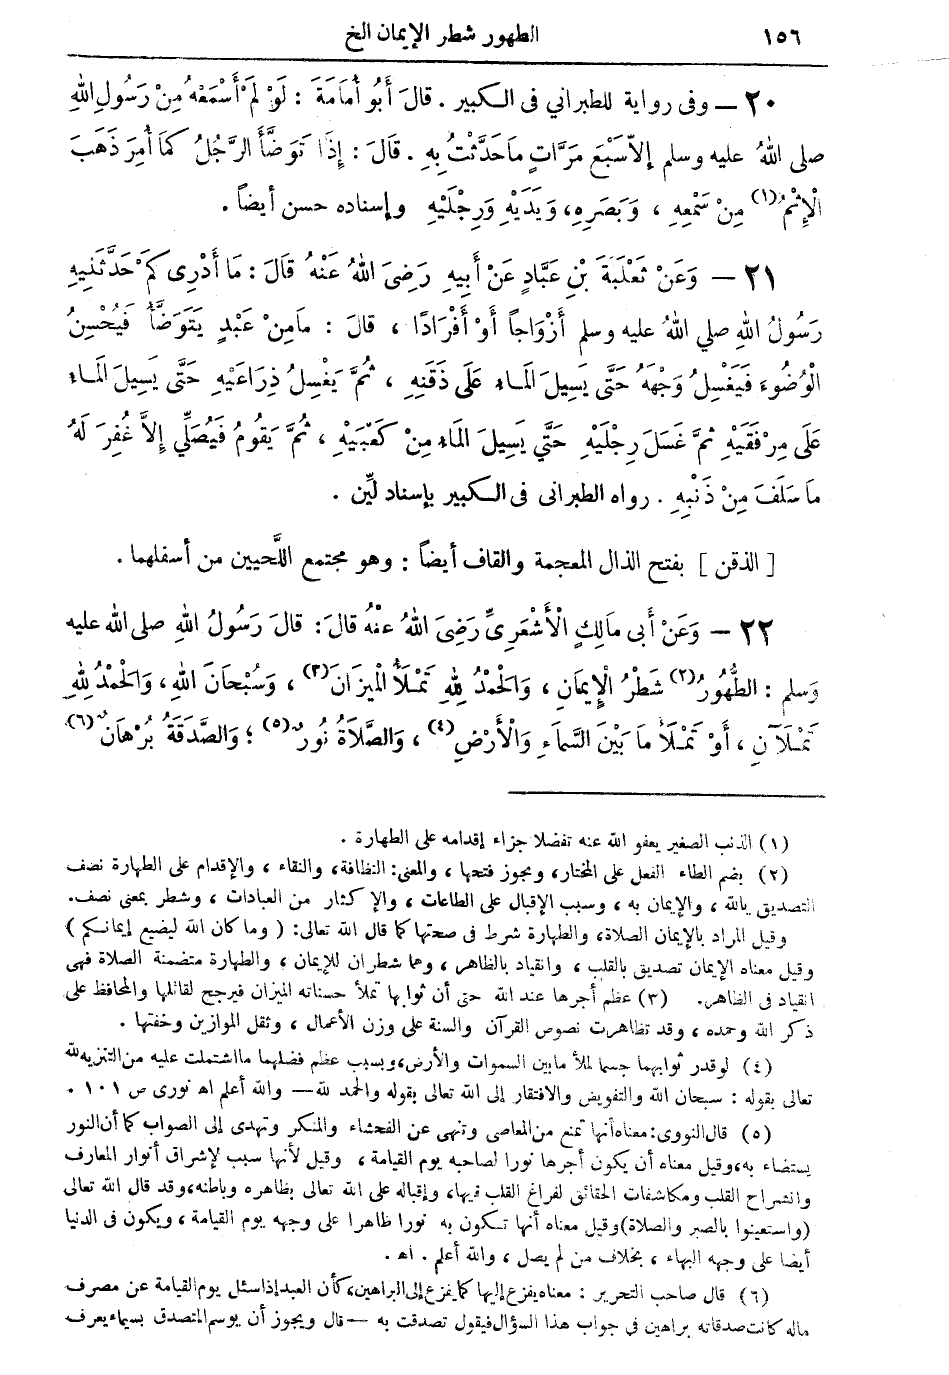 ١٥٦ الطهور شطر الإيمان الخ
٢٠ — وفى رواية للطبراني فى الكبير . قالَ أَبُو أُمَامَةَ : لَوْ لَمْ أَسْمَعْهُ مِنْ رَسُولِ اللهِ
صلى اللهُ عليه وسلم إلاَّ سَبْعَ مَرَّاتٍ مَا حَدَّثْتُ بِهِ . قَالَ : إِذَا تَوَضَّأَ الرَّجُلُ كَمَا أُمِرَ ذَهَبَ
الْإِثْمُ (١) مِنْ سَمْعِهِ ، وَبَصَرِهِ، وَيَدَيْهِ وَرِجْلَيْهِ وإسناده حسن أيضاً .
٢١ — وَعَنْ ثَعْلَبَةَ بْنِ عَبَّادٍ عَنْ أَبِيهِ رَضِىَ اللهُ عَنْهُ قَالَ : مَا أَدْرِى كَمْ حَدَّثَنِيهِ
رَسُولُ اللهِ صلي اللهُ عليه وسلم أَزْوَاجاً أَوْ أَفْرَادًا ، قالَ : مَامِنْ عَبْدٍ يَتَوَضَّأُ فَيُحْسِنُ
الْوُضُوءَ فَيَغْسِلُ وَجْهَهُ حَتَّى يَسِيلَ المَاءُ عَلَى ذَقَنِهِ ، ثُمَّ يَغْسِلُ ذِرَاعَيْهِ حَتَّى يَسِيلَ المَاءُ
عَلَى مِرْفَقَيْهِ ثمَّ غَسَلَ رِجْلَيْهِ حَتَّي يَسِيلَ المَاءُ مِنْ كَعْبَيْهِ ، ثُمَّ يَقُومُ فَيُصَلِّي إِلاَّ غُفِرَ لَهُ
مَا سَلَفَ مِنْ ذَنْبِهِ . رواه الطبرانى فى الكبير بإسناد لَيِّن .
[ الذقن ] بفتح الذال المعجمة والقاف أيضاً : وهو مجتمع اللَّحيين من أسفلهما .
٢٢ — وَعَنْ أَبى مالِكٍ الْأَشْعَرِىِّ رَضِىَ اللهُ عَنْهُ قالَ : قالَ رَسُولُ اللهِ صلى الله عليه
وَسلم : الطُّهُورُ (٢) شَطْرُ الْإِيمَانِ ، وَالْحَمْدُ لِلهِ تَمْلَأُ الْمِيزَانَ (٣) ، وَسُبْحَانَ اللهِ ، وَالْحَمْدُ لِلهِ
تَمْلَآنِ ، أَوْ تَمْلَأُ مَا بَيْنَ السَّمَاءِ وَالْأَرْضِ (٤) ، وَالصَّلَاةُ نُورٌ (٥) ؛ وَالصَّدَقَةُ بُرْهَانٌ (٦)
(١) الذنب الصغير يعفو الله عنه تفضلا جزاء إقدامه على الطهارة .
(٢) بضم الطاء الفعل على المختار، ويجوز فتحها ، والمعنى: النظافة، والنقاء ، والإقدام على الطهارة نصف
التصديق بالله ، والإيمان به ، وسبب الإقبال على الطاعات ، والإكثار من العبادات ، وشطر بمعنى نصف.
وقيل المراد بالإيمان الصلاة، والطهارة شرط فى صحتها كما قال الله تعالى: ( وما كان الله ليضيع إيمانكم )
وقيل معناه الإيمان تصديق بالقلب ، وانقياد بالظاهر ، وهما شطران للإيمان ، والطهارة متضمنة الصلاة فهى
انقياد فى الظاهر. (٣) عظم أجرها عند الله حتى أن ثوابها تملأ حسناته الميزان فيرجح لقائلها والمحافظ على
ذكر الله وحمده ، وقد تظاهرت نصوص القرآن والسنة على وزن الأعمال ، وثقل الموازين وخفتها .
(٤) لو قدر ثوابهما جسما لملأ مابين السموات والأرض، وبسبب عظم فضلهما مااشتملت عليه من التنزيه لله
تعالى بقوله : سبحان الله والتفويض والافتقار إلى الله تعالى بقوله والحمد لله — والله أعلم اه نووى ص ١٠١ .
(٥) قال النووى: معناه أنها تمنع من المعاصى وتنهى عن الفحشاء والمنكر وتهدى إلى الصواب كما أن النور
يستضاء به، وقيل معناه أن يكون أجرها نورا لصاحبه يوم القيامة ، وقيل لأنها سبب لإشراق أنوار المعارف
وانشراح القلب ومكاشفات الحقائق لفراغ القلب فيها، وإقباله على الله تعالى بظاهره وباطنه، وقد قال الله تعالى
(واستعينوا بالصبر والصلاة) وقيل معناه أنها تكون به نورا ظاهرا على وجهه يوم القيامة ، ويكون فى الدنيا
أيضا على وجهه البهاء ، بخلاف من لم يصل ، والله أعلم . اه .
(٦) قال صاحب التحرير : معناه يفزع إليها كما يفزع إلى البراهين، كأن العبد إذا سئل يوم القيامة عن مصرف
ماله كانت صدقاته براهين في جواب هذا السؤال فيقول تصدقت به — قال ويجوز أن يوسم المتصدق بسيماء يعرف